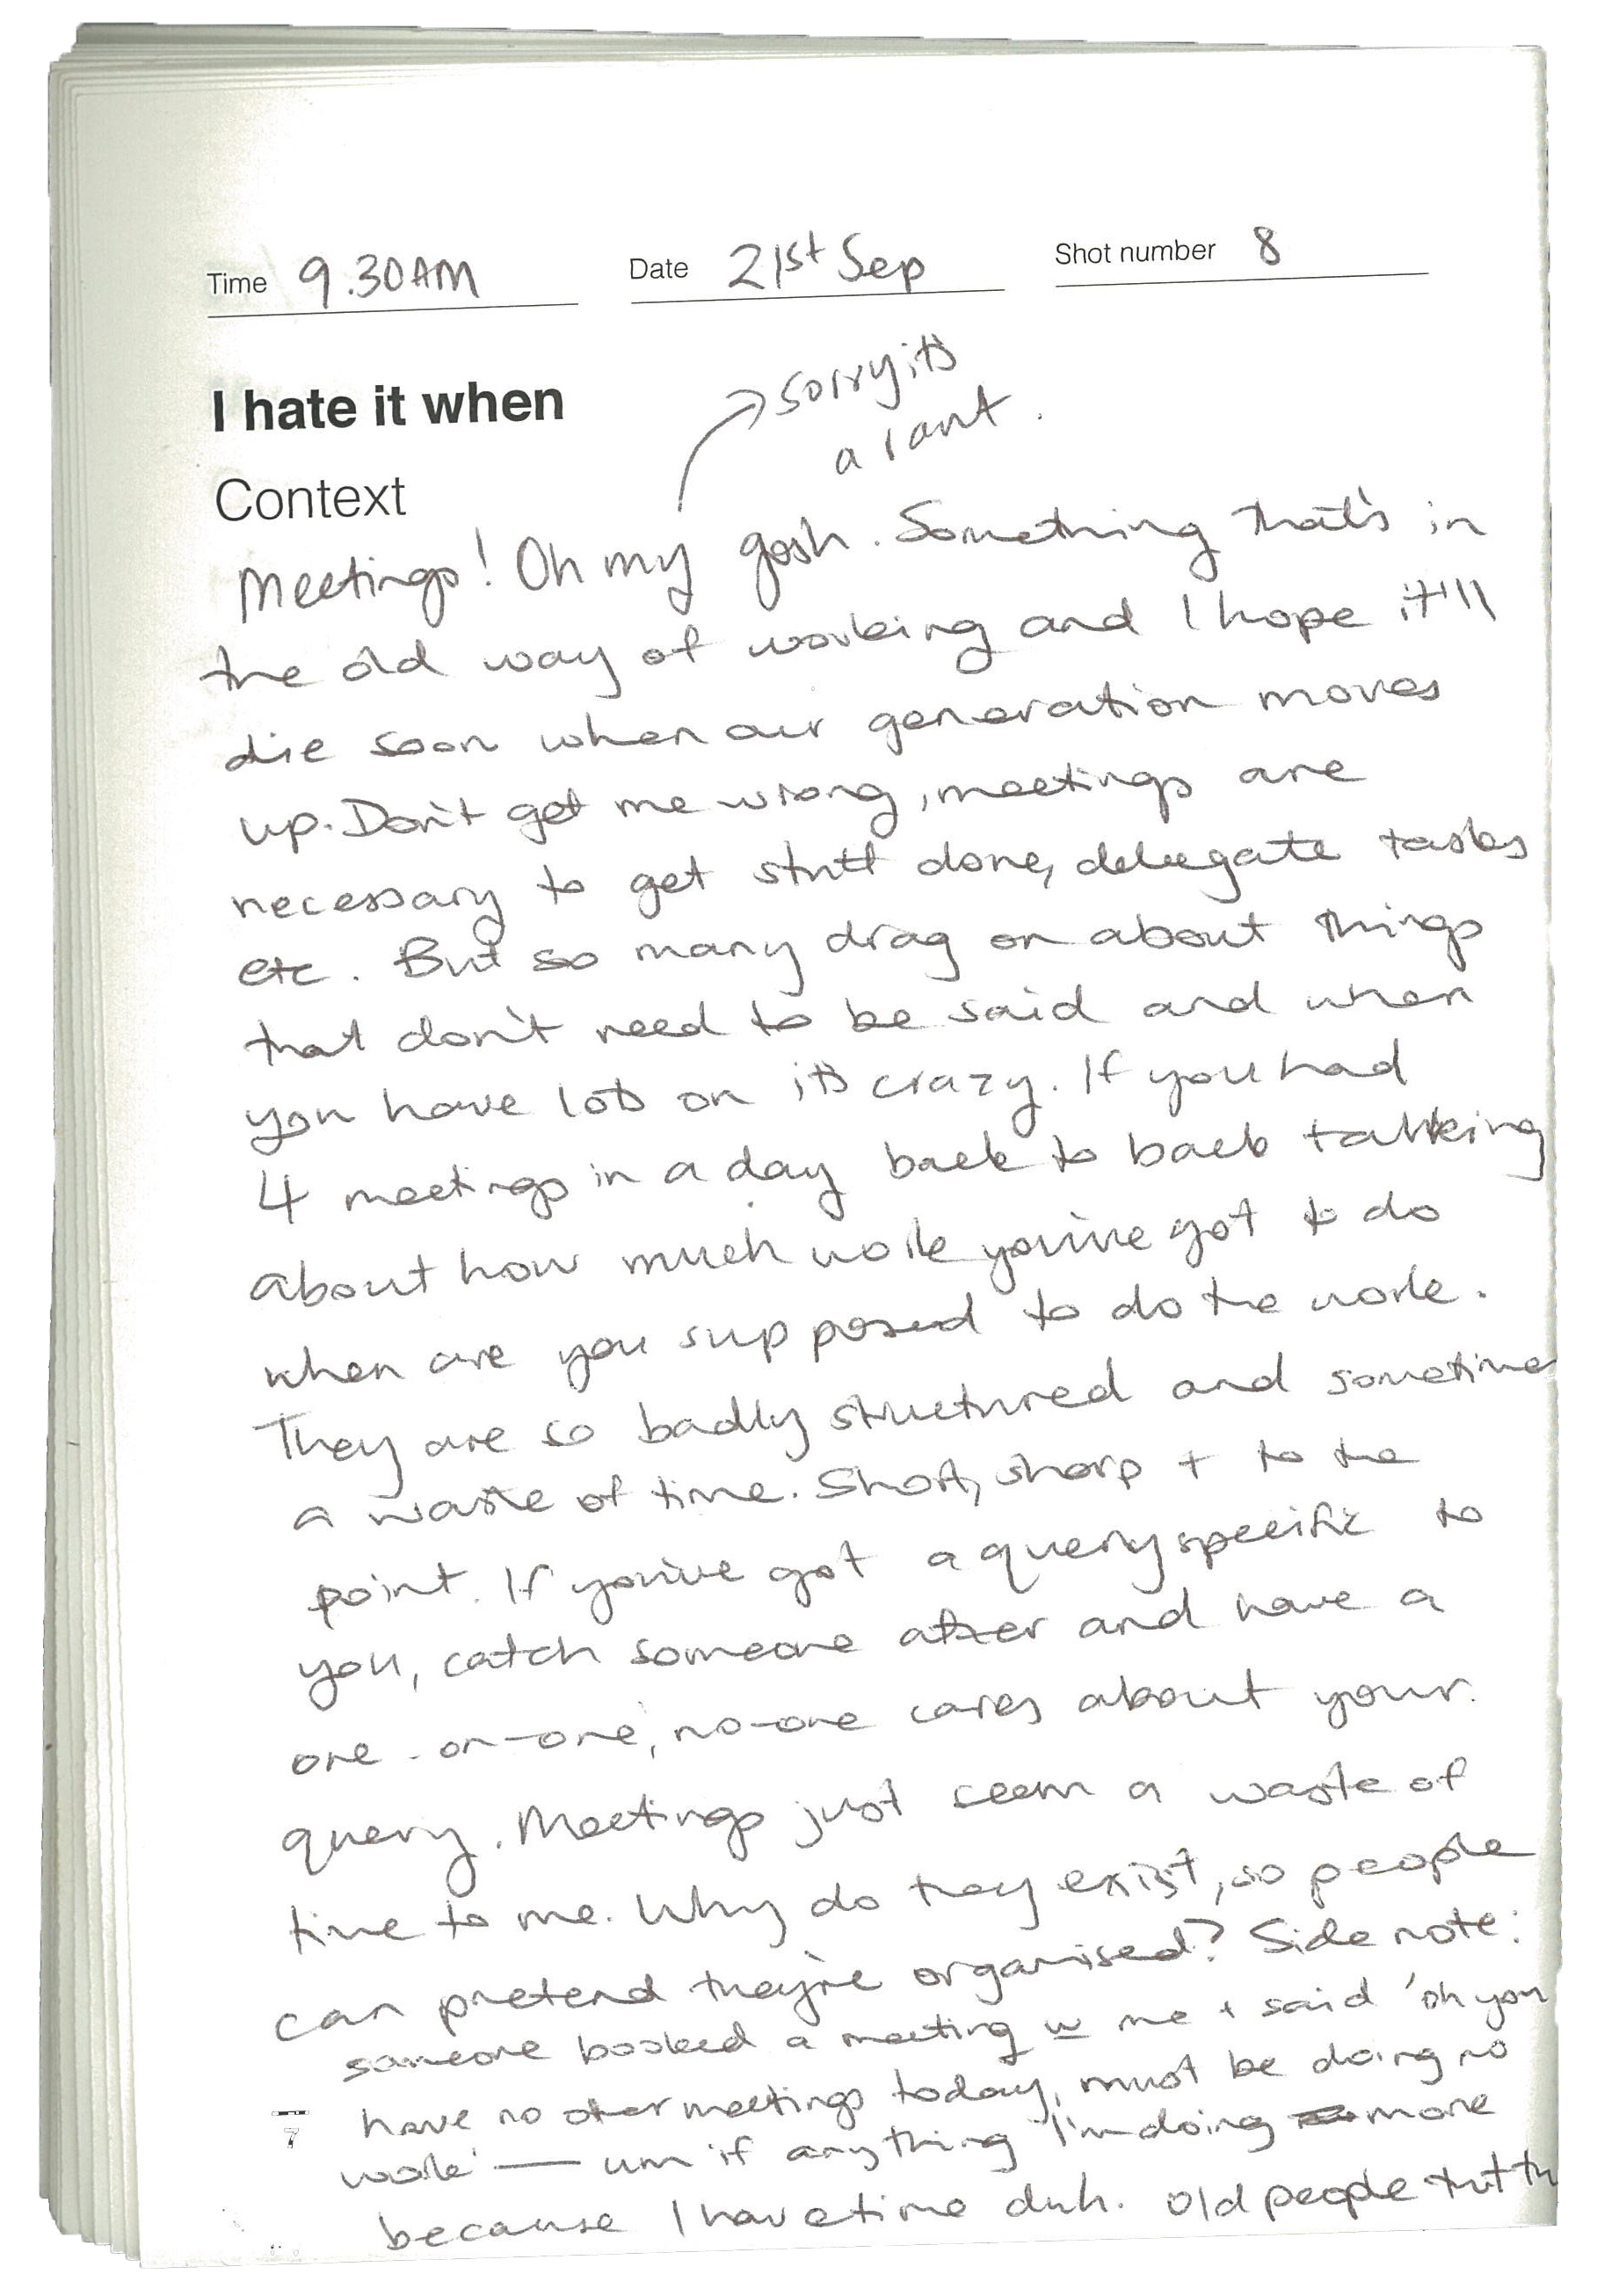 Time 9.30AM Date 21st Sep Shot number 8
I hate it when
sorry its
a rant.
Context
Meetings! Oh my gosh. Something that's in
the old way of working and I hope it'll
die soon when our generation moves
up. Don't get me wrong, meetings are
necessary to get stuff done, delegate tasks
etc. But so many drag on about things
that don't need to be said and when
you have lots on its crazy. If you had
4 meetings in a day back to back talking
about how much work you've got to do
when are you supposed to do the work.
They are so badly structured and sometimes
a waste of time. Short, sharp + to the
point. If you've got a query specific to
you, catch someone after and have a
one-on-one, no-one cares about your
query. Meetings just seem a waste of
time to me. Why do they exist, so people
can pretend they're organised? Side note:
someone booked a meeting w me + said 'oh you
have no other meetings today, must be doing no
work' — um if anything I'm doing more
because I have time duh. Old people tut tu
7